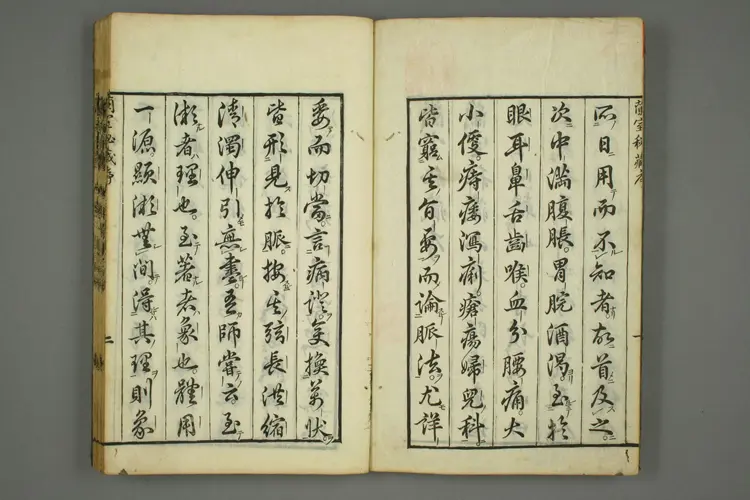 蘭室秘藏序
一
所日用而不知者故首及之
次中滿腹脹胃脘酒渴至於
眼耳鼻舌齒喉血分腰痛大
小便痔瘻瀉痢瘡瘍婦兒科
皆窮其旨要而論脈法尤詳
委而切當言病證變換萬狀
皆形見於脈按其弦長洪縮
清濁伸引無盡吾師嘗云至
微者理也至著者象也體用
一源顯微無間得其理則象
二